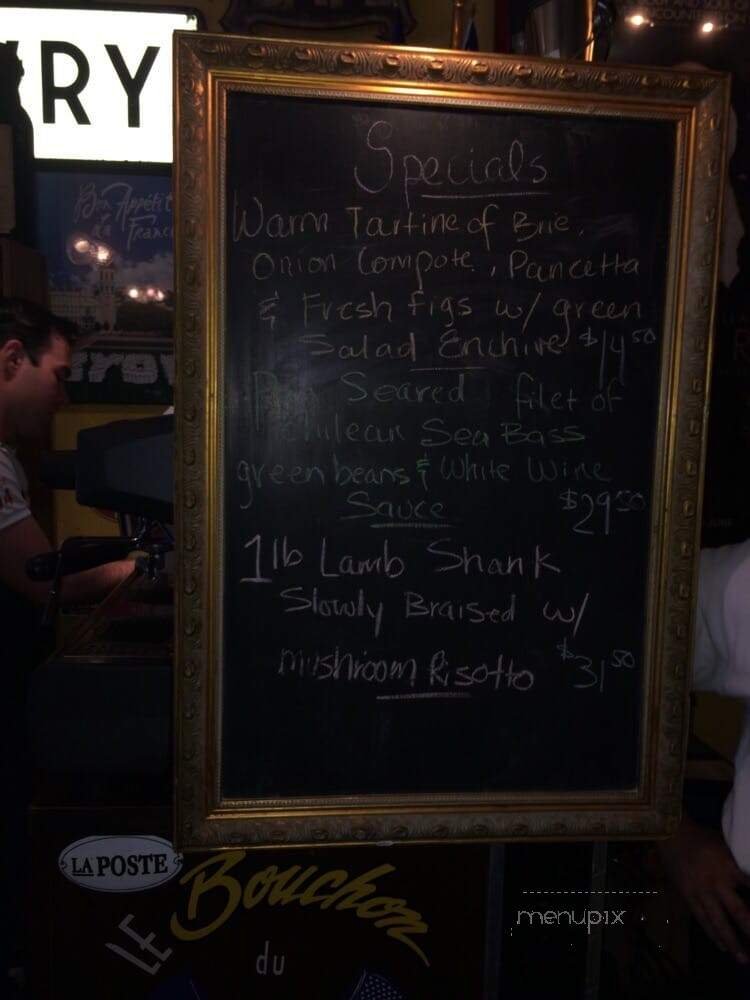 RY
Bon Appétit
France
Specials
Warm Tartine of Brie,
Onion Compote, Pancetta
& Fresh figs w/ green
Salad Enchive $14.50
Pan Seared filet of
Chilean Sea Bass
green beans & White Wine
Sauce $29.50
1 lb Lamb Shank
Slowly Braised w/
mushroom Risotto $31.50
LA POSTE
LE Bouchon
du
menupix